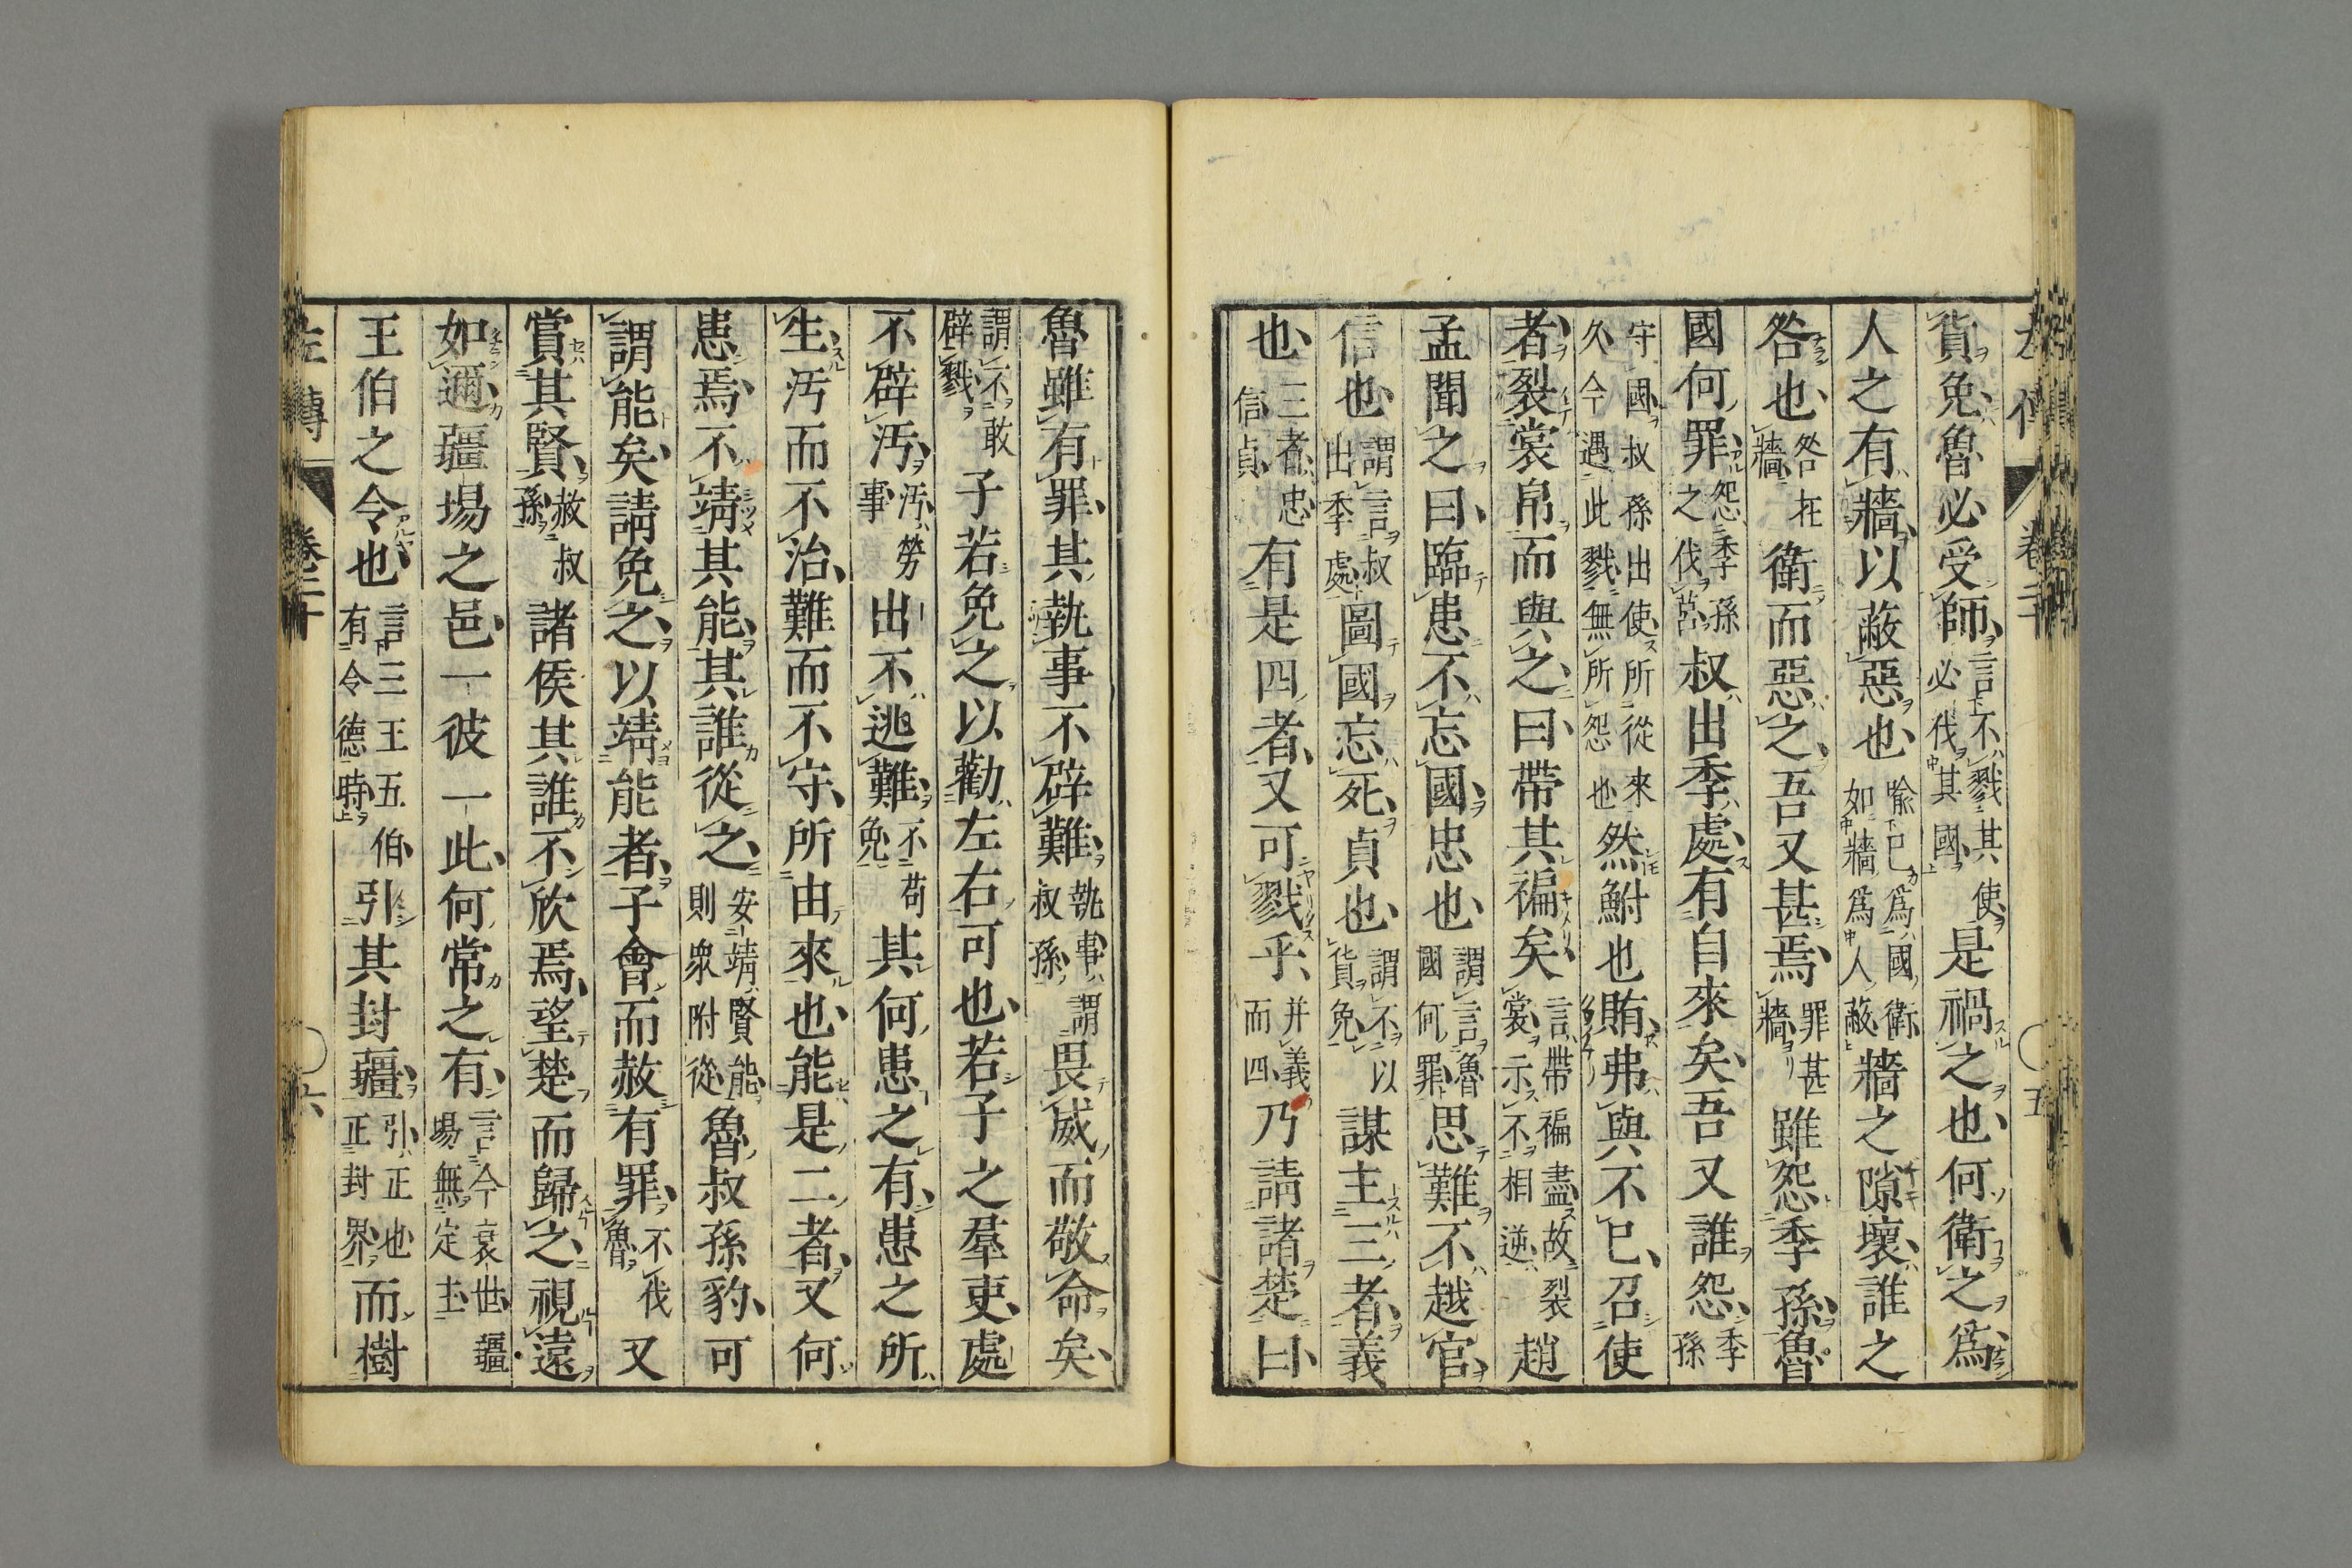 左傳 卷二十 五
貨免魯必受師言不戮其使必伐其國是禍之也何衛之爲
人之有牆以蔽惡也喩已爲國衛如牆爲人蔽牆之隙壞誰之
咎也咎在牆衛而惡之吾又甚焉罪甚牆雖怨季孫魯
國何罪怨季孫之伐莒叔出季處有自來矣吾又誰怨季孫
守國叔孫出使所從來久今遇此戮無所怨也然鮒也賄弗與不已召使
者裂裳帛而與之曰帶其褊矣言帶褊盡故裂裳示不相逆趙
孟聞之曰臨患不忘國忠也謂言魯國何罪思難不越官
信也謂言叔出季處圖國忘死貞也謂不以貨免謀主三者義
也三者忠信貞有是四者又可戮乎并義而四乃請諸楚曰
魯雖有罪其執事不辟難執事謂叔孫畏威而敬命矣
謂不敢辟戮子若免之以勸左右可也若子之羣吏處
不辟汚汚勞事出不逃難不苟免其何患之有患之所
生汚而不治難而不守所由來也能是二者又何
患焉不靖其能其誰從之安靖賢能則衆附從魯叔孫豹可
謂能矣請免之以靖能者子會而赦有罪不伐魯又
賞其賢赦叔孫諸侯其誰不欣焉望楚而歸之視遠
如邇疆埸之邑一彼一此何常之有言今衰世疆埸無定主
王伯之令也言三王五伯有令德時引其封疆引正也正封界而樹
左傳 卷二十 六